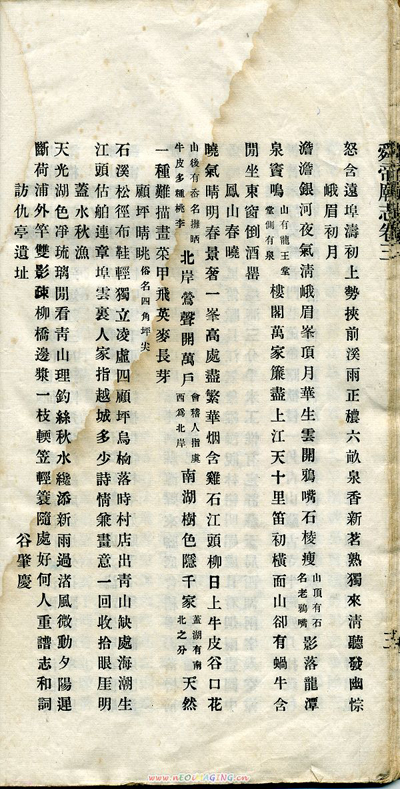 舜帝廟志卷三
怒含遠埠濤初上勢挾前溪雨正穠六畝泉香新茗熟獨來清聽發幽悰
峨眉初月
澹澹銀河夜氣清峨眉峯頂月華生雲開鴉嘴石棱瘦山頂有石名老鴉嘴影落龍潭
泉竇鳴山有龍王堂堂側有泉樓閣萬家簾盡上江天十里笛初橫而山卻有蝸牛含
閒坐東窗倒酒罌
鳳山春曉
曉氣晴明春景奢一峯高處盡繁華烟含雞石江頭柳日上牛皮谷口花
山後有岙名攤晒牛皮多種桃李北岸鶯聲開萬戶會稽人指虞西爲北岸南湖樹色隱千家蓋湖有南北之分天然
一種難描畫菜甲飛英麥長芽
顧坪晴眺俗名四角坪尖
石溪松徑布鞋輕獨立凌虛四顧坪烏桕落時村店出靑山缺處海潮生
江頭估舶連章埠雲裏人家指越城多少詩情兼畫意一回收拾眼厓明
蓋水秋漁
天光湖色凈琉璃閒看靑山理釣絲秋水纔添新雨過渚風微動夕陽遲
斷荷浦外竿雙影疎柳橋邊槳一枝輭笠輕簑隨處好何人重譜志和詞
訪仇亭遺址
谷肇慶
www.nEOIMAGING.cn